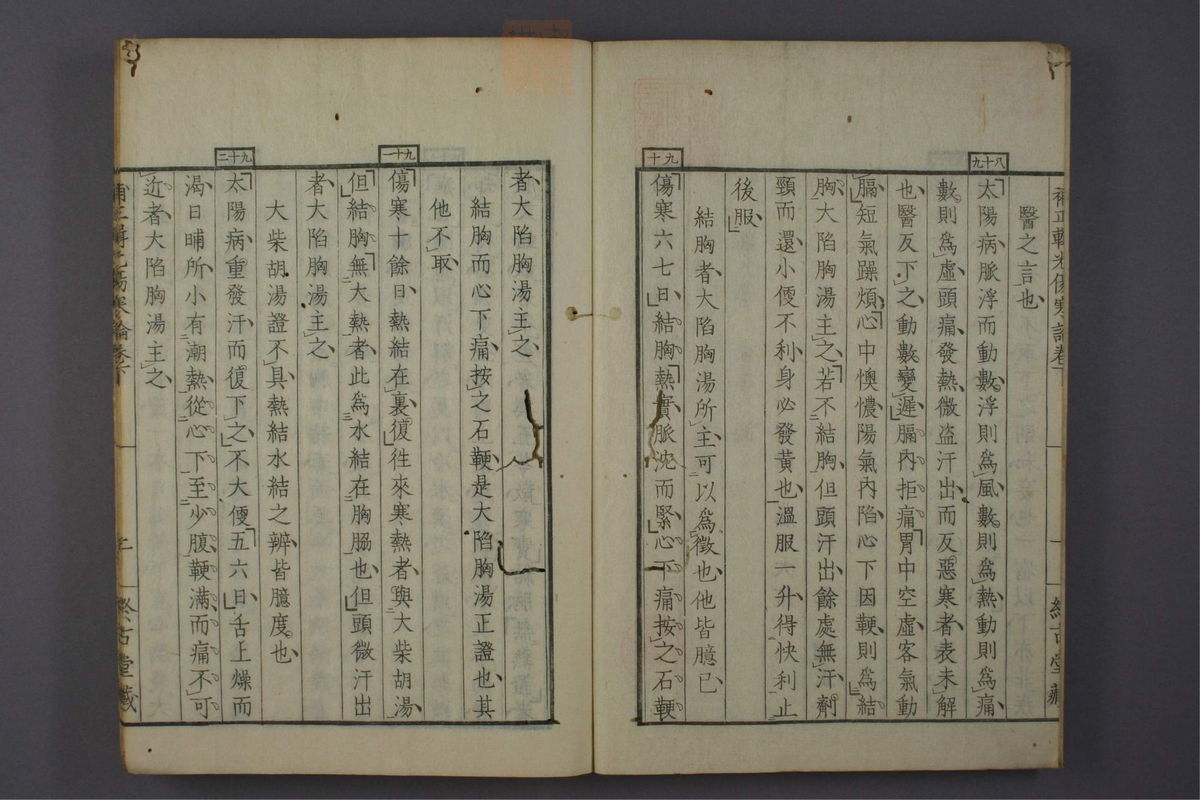 醫之言也
八十九
太陽病脈浮而動數浮則為風數則為熱動則為痛
數則為虛頭痛發熱微盗汗出而反惡寒者表未解
也醫反下之動數變遲膈內拒痛胃中空虛客氣動
膈短氣躁煩心中懊憹陽氣內陷心下因鞕則為結
胸大陷胸湯主之若不結胸但頭汗出餘處無汗劑
頸而還小便不利身必發黃也溫服一升得快利止
後服
結胸者大陷胸湯所主可以為徵也他皆臆已
九十
傷寒六七日結胸熱實脈沈而緊心下痛按之石鞕
者大陷胸湯主之
結胸而心下痛按之石鞕是大陷胸湯正證也其
他不取
九十一
傷寒十餘日熱結在裏復往來寒熱者與大柴胡湯
但結胸無大熱者此為水結在胸脇也但頭微汗出
者大陷胸湯主之
大柴胡湯證不具熱結水結之辨皆臆度也
九十二
太陽病重發汗而復下之不大便五六日舌上燥而
渴日晡所小有潮熱從心下至少腹鞕滿而痛不可
近者大陷胸湯主之